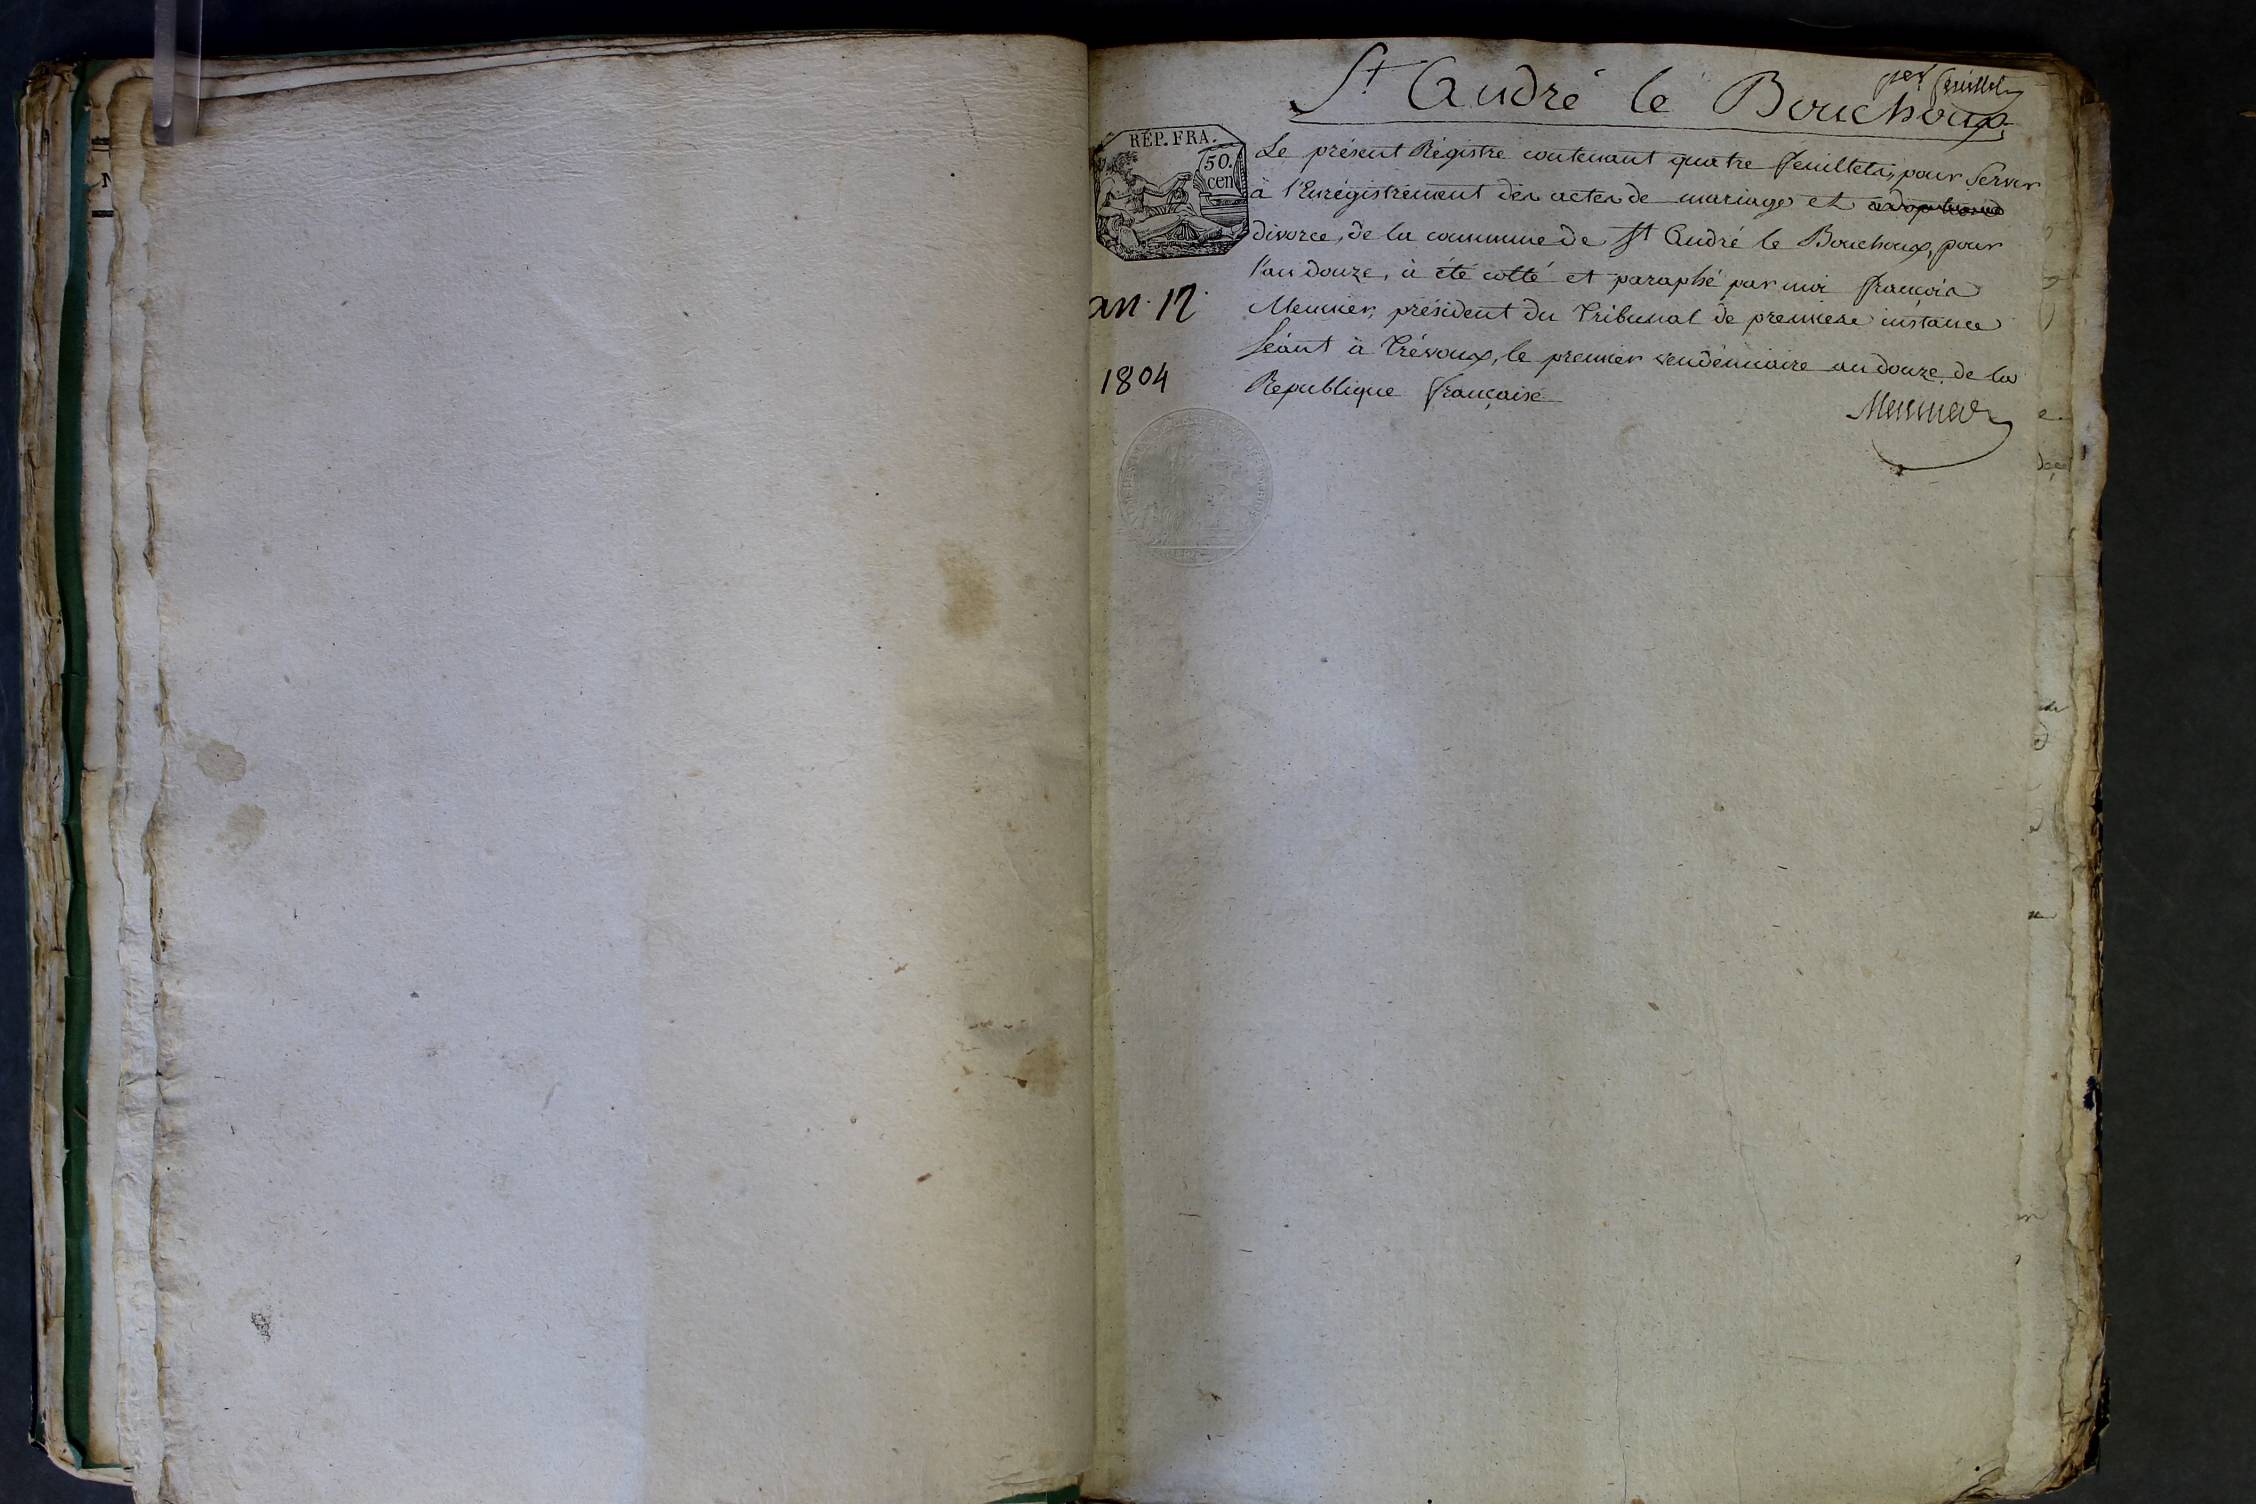 per feuillet
St André le Bouchoux,
RÉP. FRA.
50.
cen
Le présent Régistre contenant quatre feuillets, pour servir
à l'Enrégistrement des actes de mariage et
divorce, de la commune de St André le Bouchoux, pour
l'an douze, à été cotté et paraphé par moi françois
an. 12.
Meunier, président du Tribunal de premiere instance
séant à Trévoux, le premier vendémiaire an douze de la
1804
Republique française
Meunier